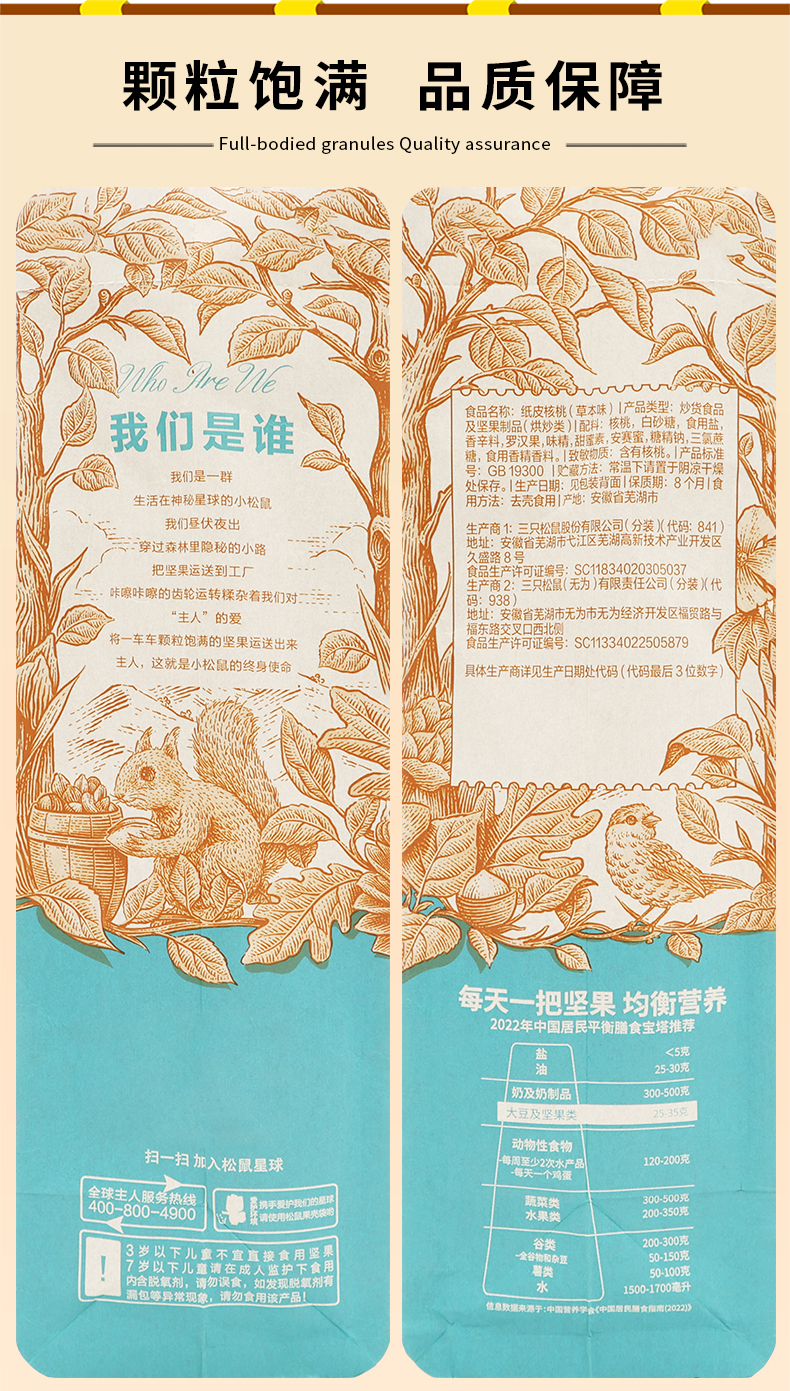 颗粒饱满 品质保障
Full-bodied granules Quality assurance
Who Are We
我们是谁
我们是一群
生活在神秘星球的小松鼠
我们昼伏夜出
穿过森林里隐秘的小路
把坚果运送到工厂
咔嚓咔嚓的齿轮运转糅杂着我们对
“主人”的爱
将一车车颗粒饱满的坚果运送出来
主人，这就是小松鼠的终身使命
扫一扫 加入松鼠星球
全球主人服务热线
400-800-4900
携手爱护我们的星球
请使用松鼠果壳袋哈
!
3岁以下儿童不宜直接食用坚果
7岁以下儿童请在成人监护下食用
内含脱氧剂，请勿误食，如发现脱氧剂有
漏包等异常现象，请勿食用该产品！
食品名称：纸皮核桃（草本味）|产品类型：炒货食品
及坚果制品（烘炒类）|配料：核桃，白砂糖，食用盐，
香辛料，罗汉果，味精，甜蜜素，安赛蜜，糖精钠，三氯蔗
糖，食用香精香料。|致敏物质：含有核桃。|产品标准
号：GB 19300 |贮藏方法：常温下请置于阴凉干燥
处保存。|生产日期：见包装背面|保质期：8个月|食
用方法：去壳食用|产地：安徽省芜湖市
生产商1：三只松鼠股份有限公司（分装）（代码：841）
地址：安徽省芜湖市弋江区芜湖高新技术产业开发区
久盛路8号
食品生产许可证编号：SC11834020305037
生产商2：三只松鼠（无为）有限责任公司（分装）（代
码：938）
地址：安徽省芜湖市无为市无为经济开发区福贸路与
福东路交叉口西北侧
食品生产许可证编号：SC11334022505879
具体生产商详见生产日期处代码（代码最后3位数字）
每天一把坚果 均衡营养
2022年中国居民平衡膳食宝塔推荐
盐 <5克
油 25-30克
奶及奶制品 300-500克
大豆及坚果类 25-35克
动物性食物
-每周至少2次水产品 120-200克
-每天一个鸡蛋
蔬菜类 300-500克
水果类 200-350克
谷类 200-300克
-全谷物和杂豆 50-150克
薯类 50-100克
水 1500-1700毫升
信息数据来源于：中国营养学会《中国居民膳食指南(2022)》